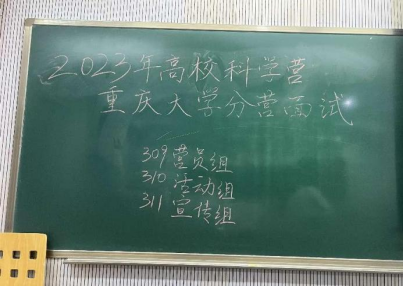 2023年高校科学营
重庆大学分营面试
309营员组
310活动组
311宣传组